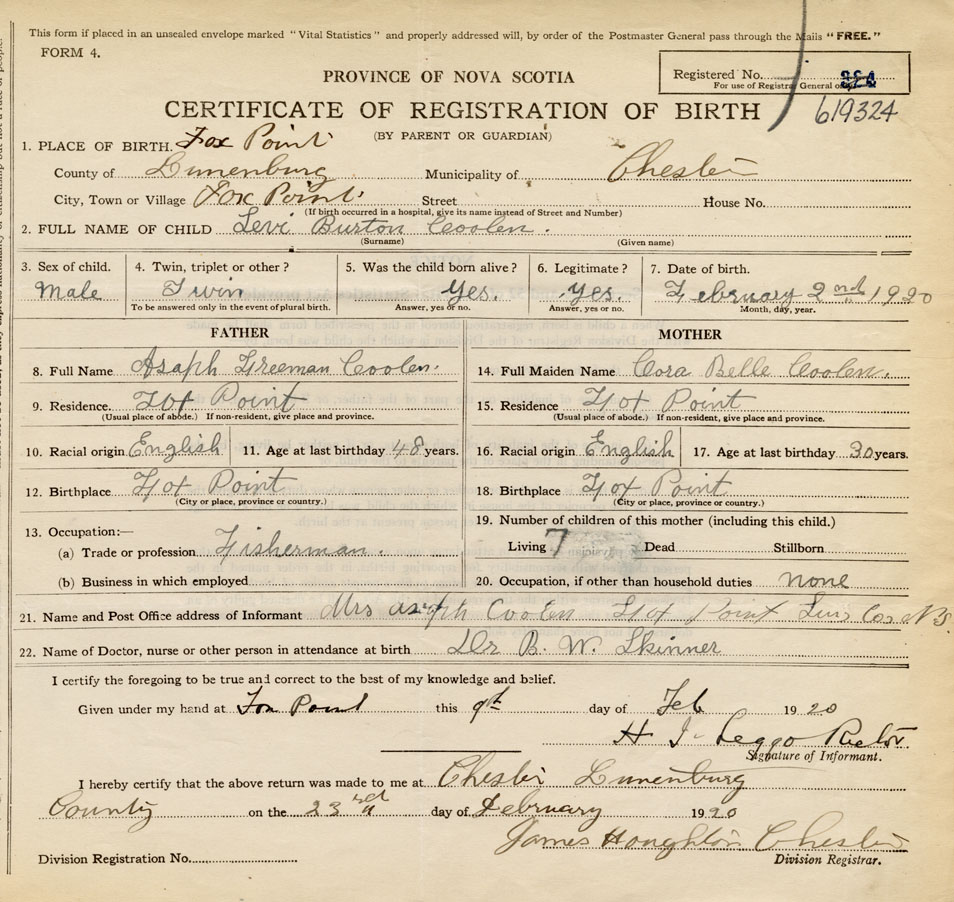 This form if placed in an unsealed envelope marked "Vital Statistics" and properly addressed will, by order of the Postmaster General pass through the Mails "FREE."
FORM 4.
PROVINCE OF NOVA SCOTIA
Registered No. 324
For use of Registrar General only
CERTIFICATE OF REGISTRATION OF BIRTH
619324
(BY PARENT OR GUARDIAN)
1. PLACE OF BIRTH. Fox Point
County of Lunenburg Municipality of Chester
City, Town or Village Fox Point Street House No.
(If birth occurred in a hospital, give its name instead of Street and Number)
2. FULL NAME OF CHILD Levi Burton Coolen.
(Surname) (Given name)
3. Sex of child. 4. Twin, triplet or other? 5. Was the child born alive? 6. Legitimate? 7. Date of birth.
Male Twin Yes. Yes. February 2nd 1920
To be answered only in the event of plural birth. Answer, yes or no. Answer, yes or no. Month, day, year.
FATHER MOTHER
8. Full Name Asaph Freeman Coolen. 14. Full Maiden Name Cora Belle Coolen.
9. Residence. Fox Point 15. Residence Fox Point
(Usual place of abode.) If non-resident, give place and province. (Usual place of abode.) If non-resident, give place and province.
10. Racial origin English 11. Age at last birthday 48 years. 16. Racial origin English 17. Age at last birthday 30 years.
12. Birthplace Fox Point 18. Birthplace Fox Point
(City or place, province or country.) (City or place, province or country.)
13. Occupation:— 19. Number of children of this mother (including this child.)
(a) Trade or profession Fisherman. Living 7 Dead Stillborn
(b) Business in which employed 20. Occupation, if other than household duties none
21. Name and Post Office address of Informant Mrs Asaph Coolen Fox Point Lun Co. N.S.
22. Name of Doctor, nurse or other person in attendance at birth Dr B. W. Skinner
I certify the foregoing to be true and correct to the best of my knowledge and belief.
Given under my hand at Fox Point this 9th day of Feb 1920
H J Leggo Rector
Signature of Informant.
I hereby certify that the above return was made to me at Chester Lunenburg
County on the 23rd day of February 1920
James Houghton Chester
Division Registration No. Division Registrar.